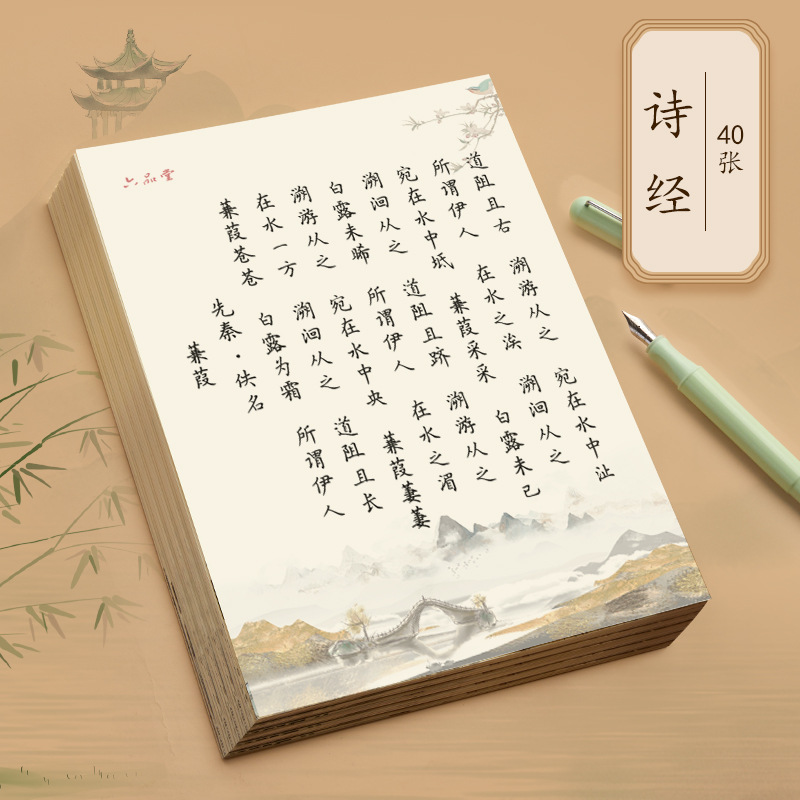 六品堂
蒹葭
先秦·佚名
蒹葭苍苍 白露为霜 所谓伊人
在水一方 溯洄从之 道阻且长
溯游从之 宛在水中央 蒹葭萋萋
白露未晞 所谓伊人 在水之湄
溯洄从之 道阻且跻 溯游从之
宛在水中坻 蒹葭采采 白露未已
所谓伊人 在水之涘 溯洄从之
道阻且右 溯游从之 宛在水中沚
诗经
40张